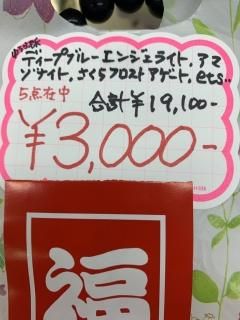 ディープブルーエンジェライト、アマ
ゾナイト、さくらフロストアゲート、etc..
5点在中
合計¥19,100-
¥3,000-
福